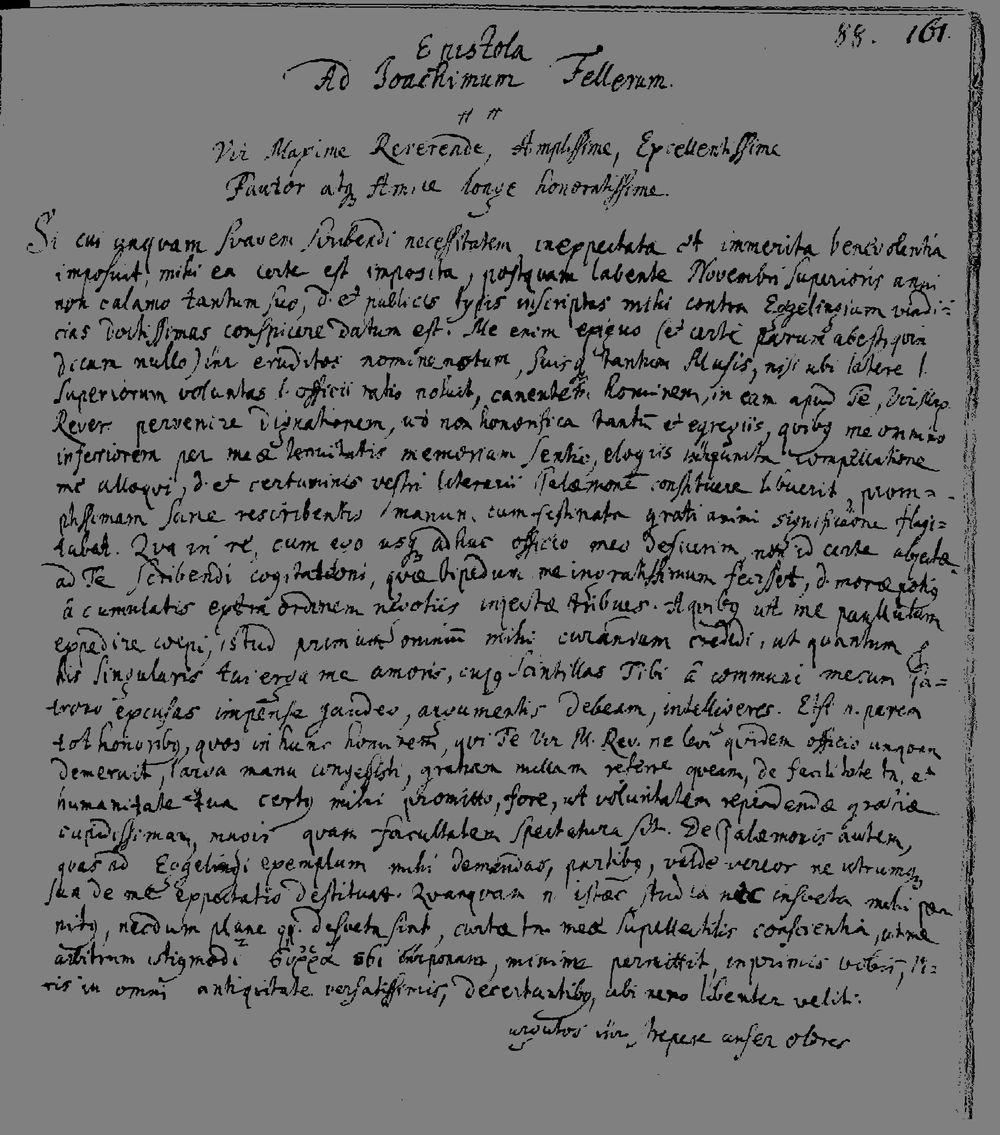 88. 161.
Epistola
Ad Joachimum Fellerum.
Vir Maxime Reverende, Amplissime, Excellentissime
Fautor atq Amice longe honoratissime.
Si cui unquam suavem scribendi necessitatem inexpectata et immerita benevolentia
imposuit, mihi ea certe est imposita, postquam labente Novembri superioris anni
non calamo tantum suo, s. et publicis typis inscriptas mihi contra Eggelingium vindi=
cias doctissimas conspicere datum est. Me enim exiguo (et certe parum abest quin
dicam nullo) inr eruditos nomine notum, suisq tantum Musis, nisi ubi latere l.
superiorum voluntas l. officii ratio noluit, canentem hominem, in eam apud Te, Vir Max.
Rever pervenire dignationem, ut non honorifica tantu et egregiis, quibq me omnino
inferiorem per meae tenuitatis memoriam sentio, elogiis compellatione
me alloqui, s. et certaminis vestri literarii Palaemone constituere libuerit, prom=
ptissimam sane rescribentis manum cum festinata grati animi significatione flagi=
tabat. Qua in re, cum ego usq adhuc officio meo defuerim, non id certe abjectae
ad Te scribendi cogitationi, quae bipedum me ingratissimum fecisset, s. morae potiq
a cumulatis extra ordinem negotiis injectae tribues. A quibq ut me paullulum
expedire coepi, istud primum omnium mihi curandum credidi, ut quantum
his singularis tui erga me amoris, cujq scintillas Tibi a communi mecum Pa=
trono excusas impense gaudeo, argumentis debeam, intelligeres. Etsi n. parem
tot honoribq, quos in hunc hominem, qui Te Vir M. Rev. ne levi quidem officio unquam
demeruit, larga manu congessisti, gratiam nullam referre queam, de facilitate tn. et
humanitate tua certq mihi promitto, fore, ut voluntatem rependendae gratiae
cupidissimam, magis quam facultatem spectatura sit. De Palaemonis autem,
quas ad Eggelingi exemplum mihi demandas, partibq, valde vereor ne utrumq
sua de me expectatio destituat. Quanquam n. istaec studia nec insueta mihi pae
nitq, necdum plane desueta sint, curtae tn. meae supellectilis conscientia, ut me
arbitrum istiqmodi minime permittit, inprimis vobis, vi=
ris in omni antiquitate versatissimis, decertantibq, ubi nemo libenter velit:
argutos inr strepere anser olores